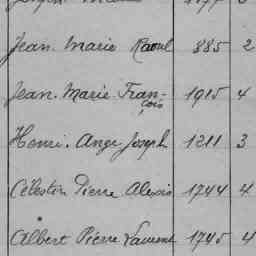 Jean. Marie Raoul 885 2
Jean. Marie Fran- 1915 4
çois
Henri. Ange Joseph 1211 3
Célestin Pierre 1744 4
Albert Pierre Laurent 1745 4